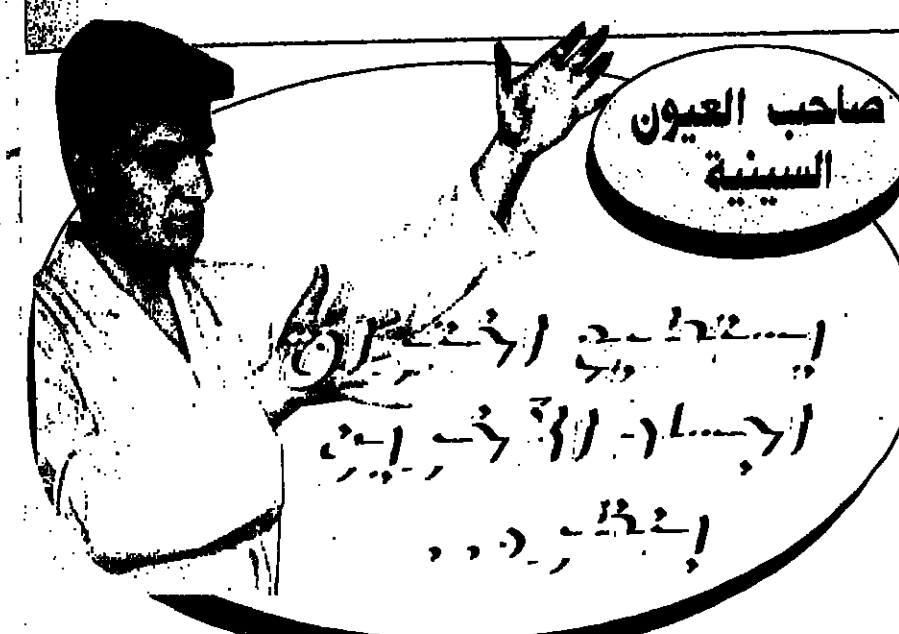 صاحب العيون
السينية
يستطيع اختراق
أجساد الآخرين
بنظره...